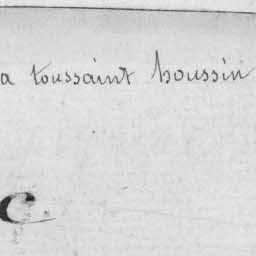 a toussaint houssin
C